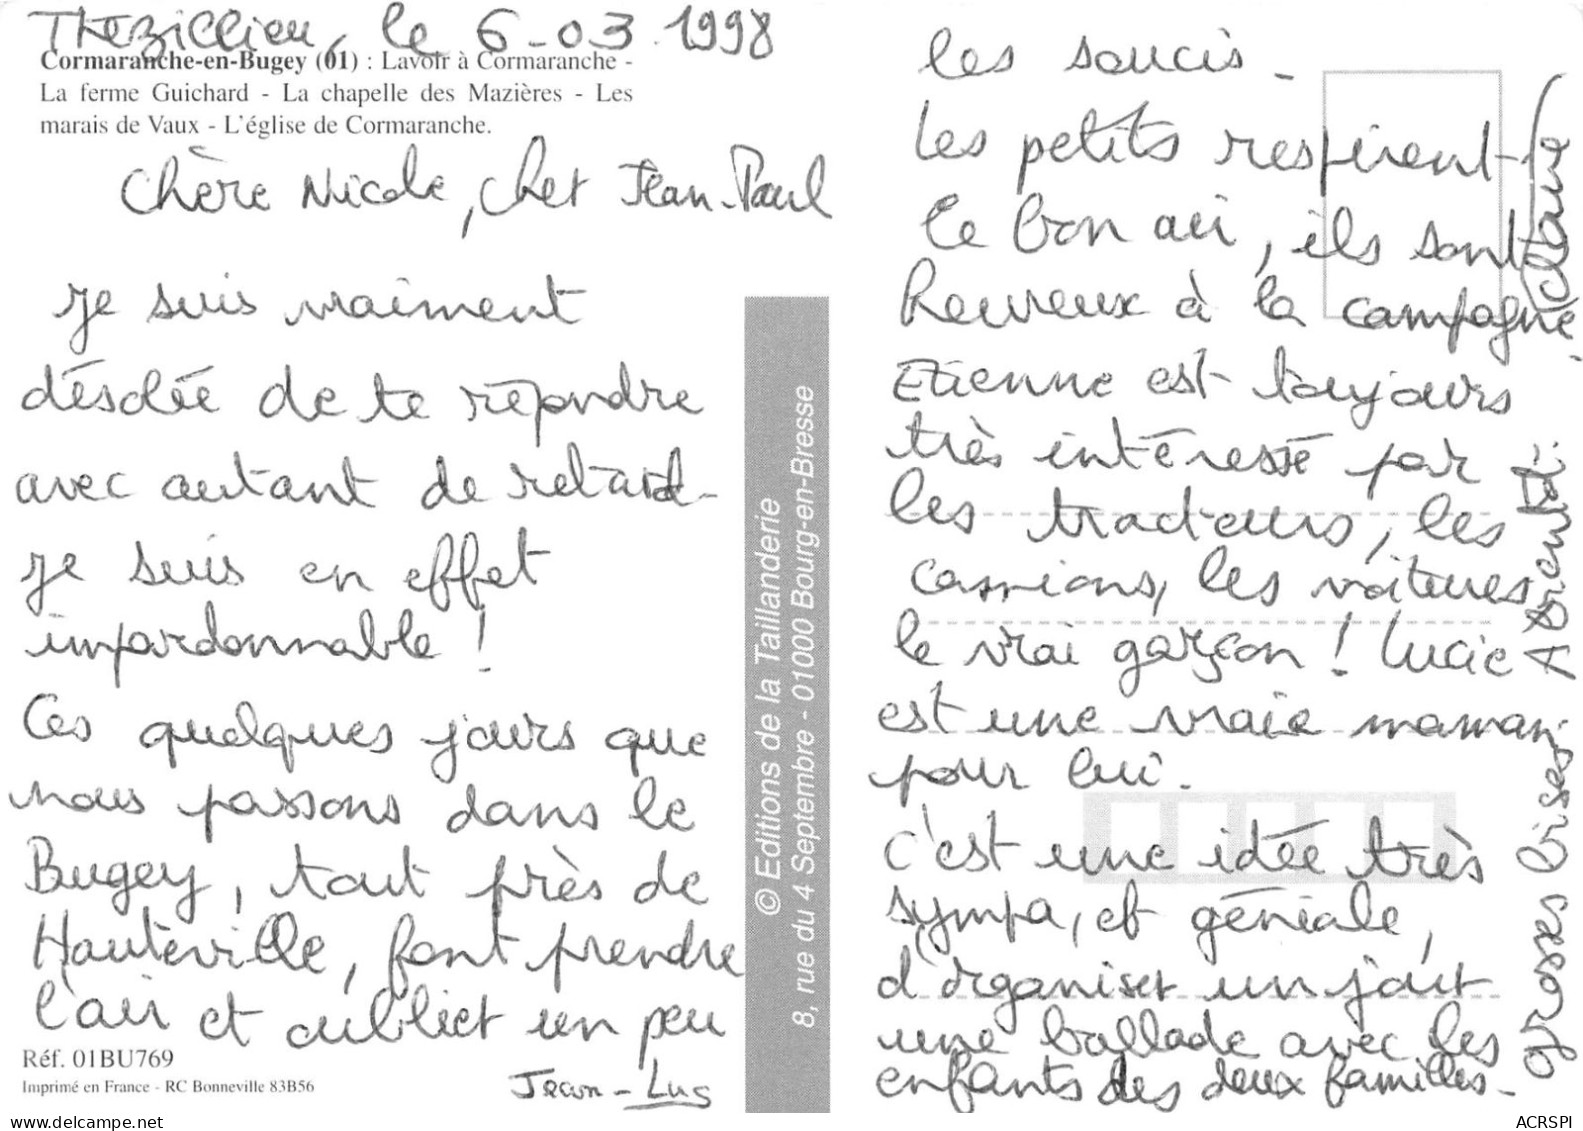 Thezillieu, le 6-03.1998
Cormaranche-en-Bugey (01) : Lavoir à Cormaranche -
La ferme Guichard - La chapelle des Mazières - Les
marais de Vaux - L'église de Cormaranche.
Chère Nicole, cher Jean-Paul
je suis vraiment
désolée de te répondre
avec autant de retard-
je suis en effet
impardonnable !
Ces quelques jours que
nous passons dans le
Bugey, tout près de
Hauteville, font prendre
l'air et oublier un peu
Réf. 01BU769
Imprimé en France - RC Bonneville 83B56
Jean-Luc
© Editions de la Taillanderie
8, rue du 4 Septembre - 01000 Bourg-en-Bresse
les soucis -
Les petits respirent
le bon air, ils sont
heureux à la campagne.
Etienne est toujours
très intéressé par
les tracteurs, les
camions, les voitures,
le vrai garçon ! Lucie
est une vraie maman
pour lui.
C'est une idée très
sympa, et géniale,
d'organiser un jour
une ballade avec les
enfants des deux familles-
grosses bises A bientôt. Claire
ACRSPI